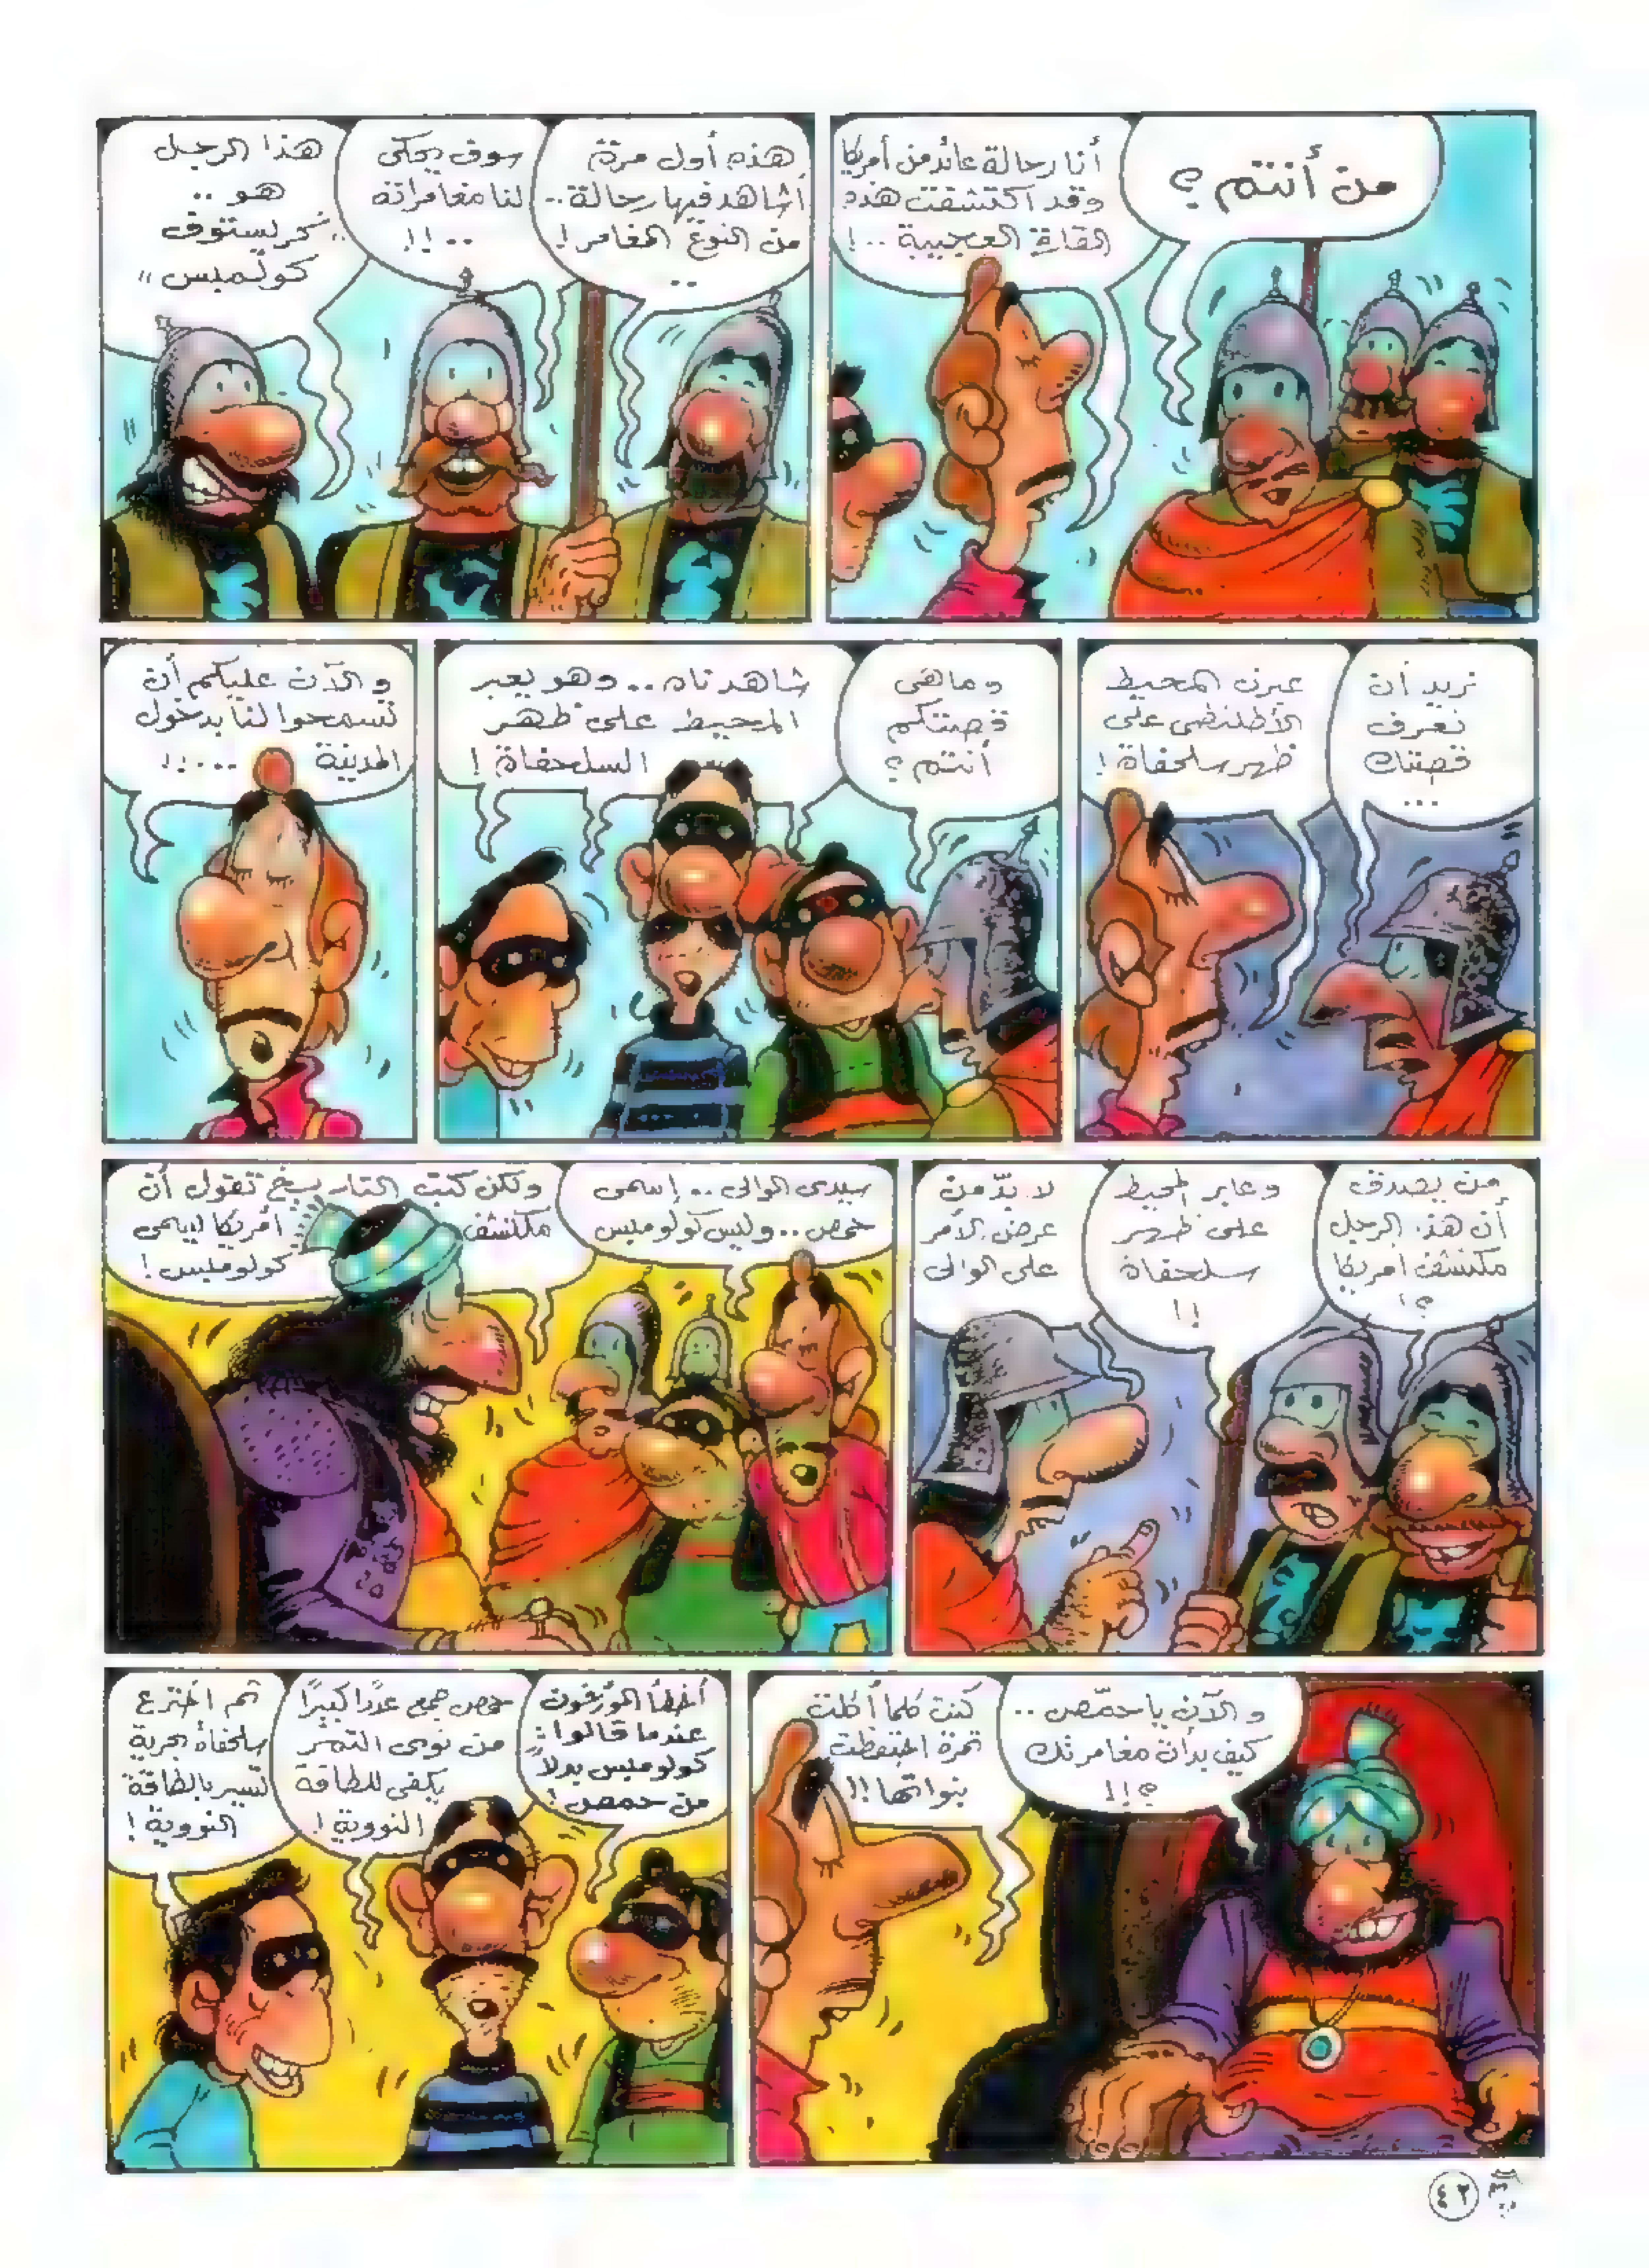 من أنتم؟
أنا رحالة عائد من أمريكا
وقد اكتشفت هذه
القارة العجيبة ..!
هذه أول مرة
أشاهد فيها رحالة ..
من النوع المغامر!
..
سوف يحكى
لنا مغامراته
..!!
هذا الرجل
هو ..
"كريستوف
كولمبس"
نريد أن
نعرف
قصتك
...
عبرت المحيط
الأطلنطى على
ظهر سلحفاة!
وما هى
قصتكم
أنتم؟
شاهدناه .. وهو يعبر
المحيط على ظهر
السلحفاة!
والآن عليكم أن
تسمحوا لنا بدخول
المدينة ...!!
من يصدق
أن هذا الرجل
مكتشف أمريكا
؟!
وعابر المحيط
على ظهر
سلحفاة
!!
لا بدّ من
عرض الأمر
على الوالى
سيدى الوالى .. إسمى
حمص .. وليس كولومبس
ولكن كتب التاريخ تقول أن
مكتشف أمريكا يسمى
كولومبس!
والآن يا حمّص ..
كيف بدأت مغامرتك
؟!!
كنت كلما أكلت
تمرة احتفظت
بنواتها!!
أخطأ المؤرخون
عندما قالوا:
كولومبس بدلاً
من حمص!
حمص جمع عددًا كبيرًا
من نوى التمر
يكفى للطاقة
النووية!
ثم اخترع
سلحفاة بحرية
تسير بالطاقة
النووية!
٤٢